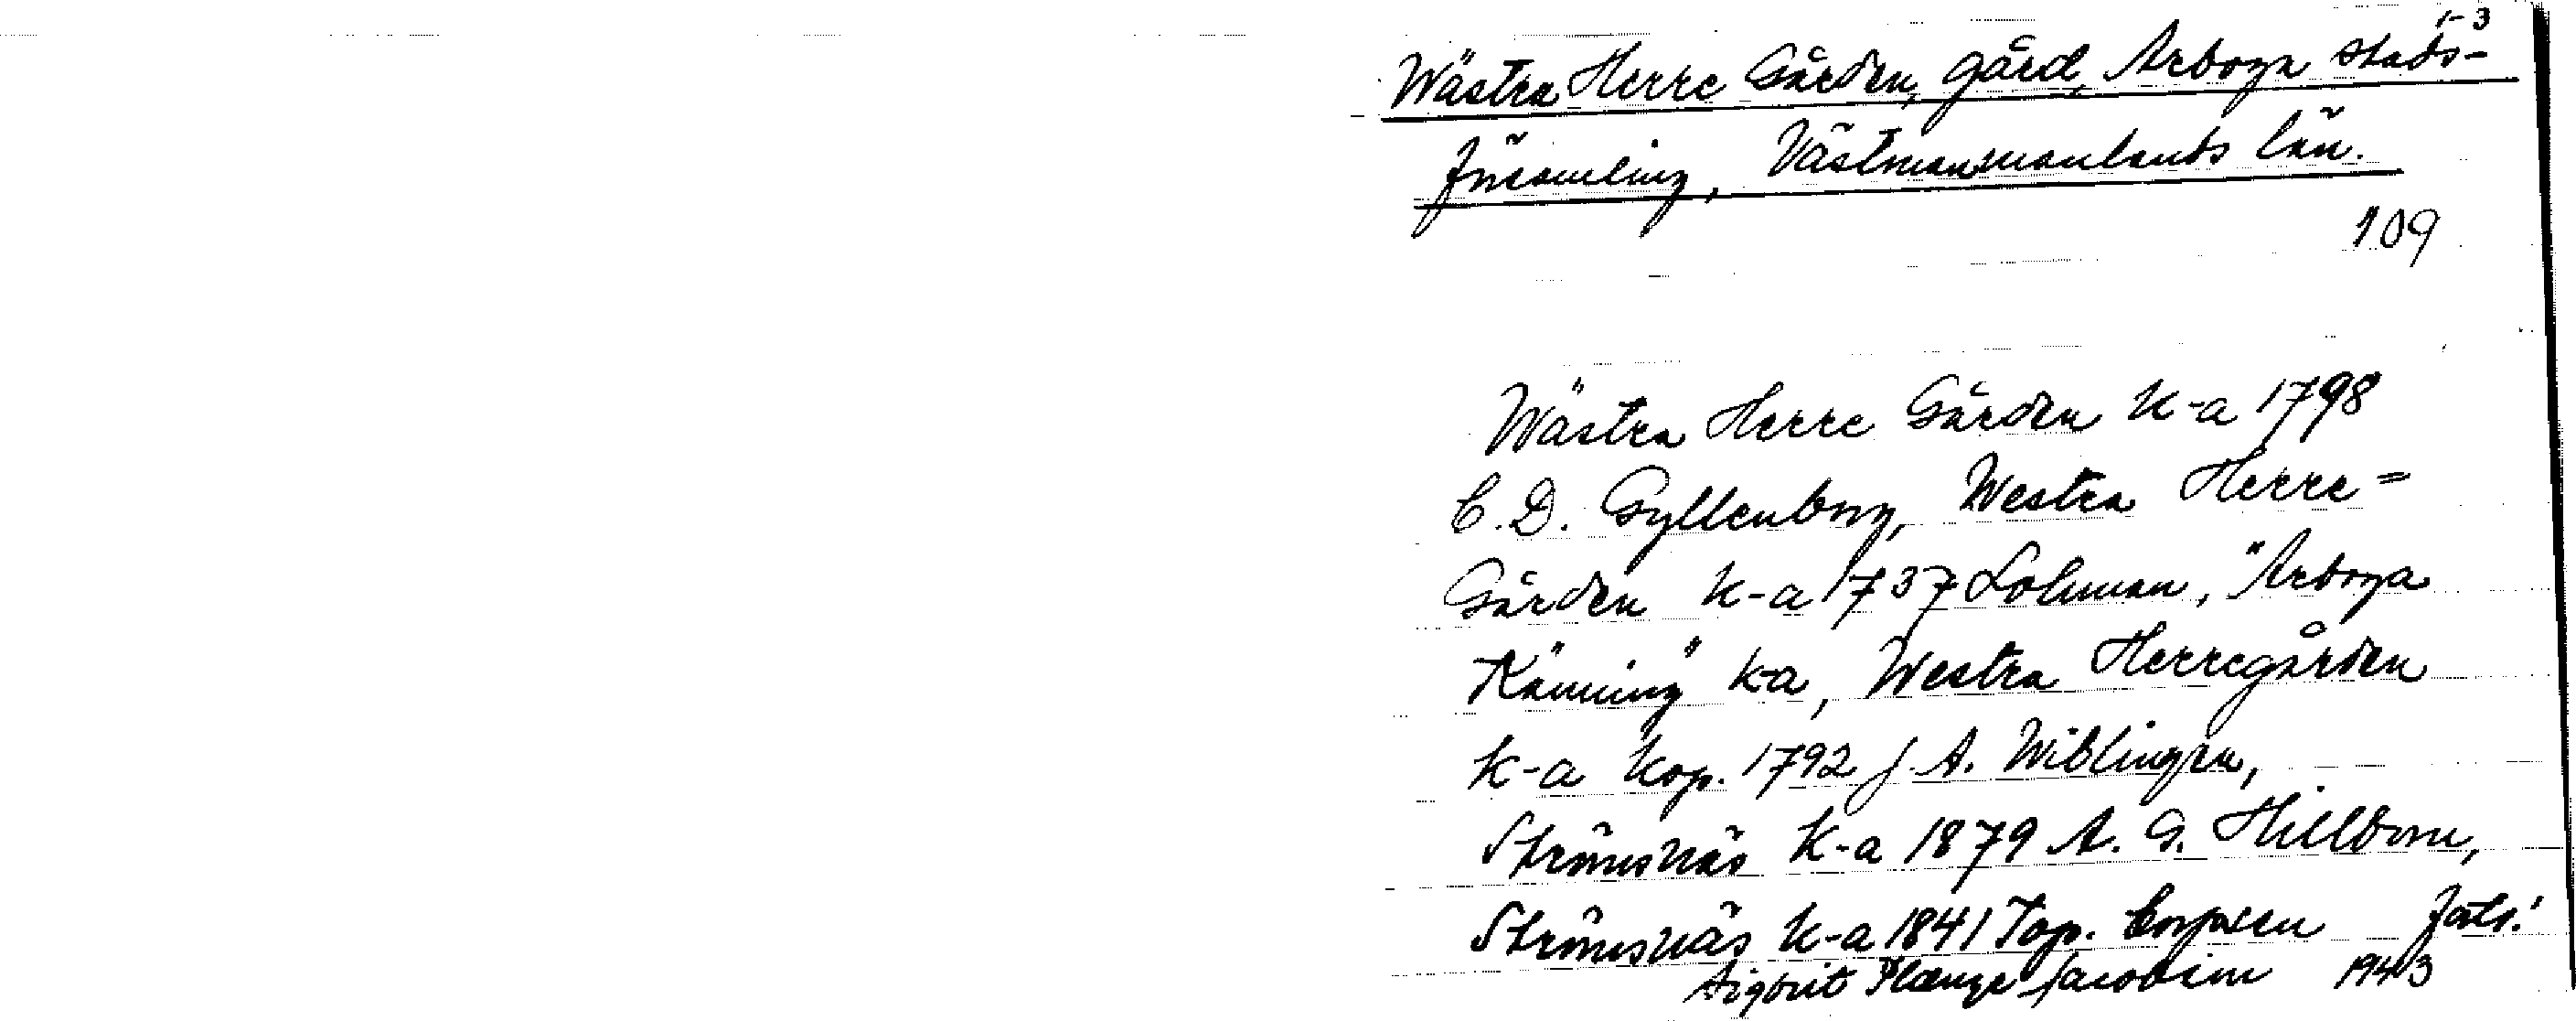 1-3
Wästra Herre Gården, gård, Arboga stads-
församling, Västmanmanlands län.
109
Wästra Herre Gården K-a 1798
C. D. Gyllenborg, Westra Herre=
Gården K-a 1737 Lohman, "Arboga
Känning" k-a, Westra Herregården
K-a Kop. 1792 J. A. Wiblingen,
Strömsnäs K-a 1879 A. G. Hillbom,
Strömsnäs K-a 1841 Top. Corpsen forts.!
Sigbrit Plænge Jacobson 1943